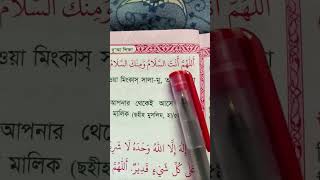 দু'আ শিক্ষা
اَللَّهُمَّ أَنْتَ السَّلَامُ وَمِنْكَ السَّلَامُ
ওয়া মিংকাস্ সালা-মু,
আপনার থেকেই আসে
মালিক (ছহীহ মুসলিম,
إِلَهَ إِلَّا اللَّهُ وَحْدَهُ لَا
عَلَى كُلِّ شَيْءٍ قَدِيرٌ. اَللَّهُمَّ
আপনার থেকে
মালিক (ছহীহ